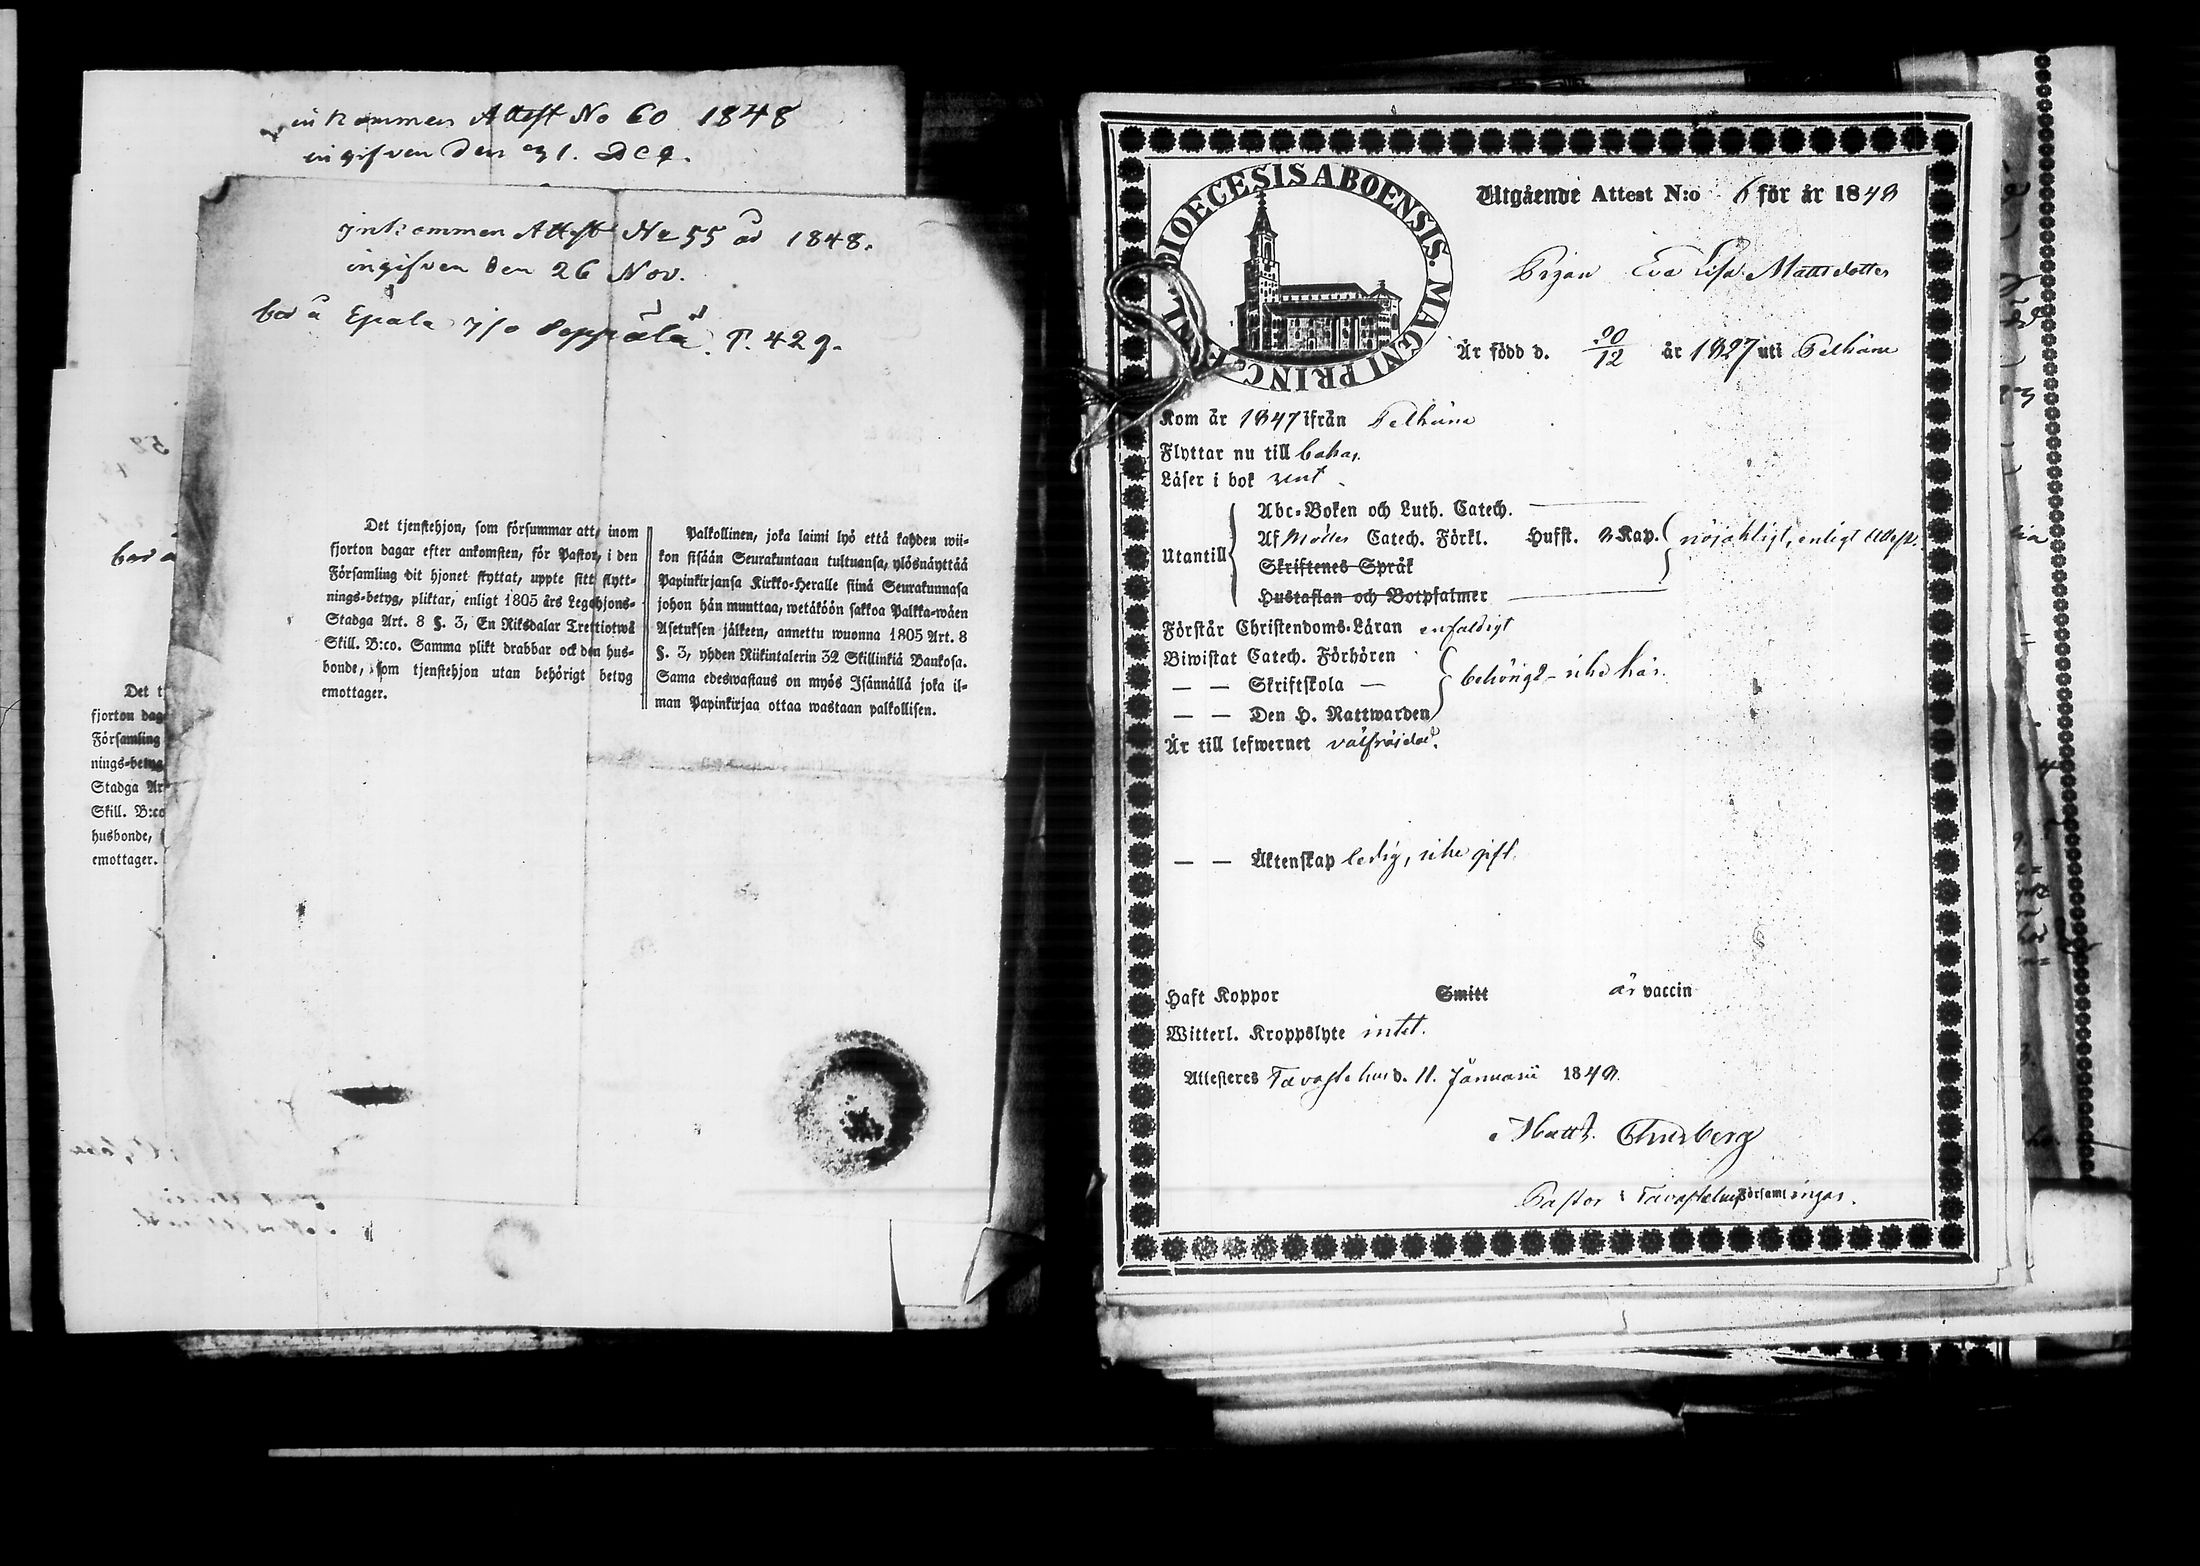 inkommen Attest No 60 1848
ingifven den 31. Dec.
Inkommen Attest No 55 ad 1848.
ingifven den 26 Nov.
bod å Epala y/o Seppälä P. 429.
Det tjenstehjon, som försummar att, inom
fjorton dagar efter ankomsten, för Pastor, i den
Församling dit hjonet flyttat, uppte sitt flytt-
nings-betyg, pliktar, enligt 1805 års Legohjons-
Stadga Art. 8 §. 3, En Riksdalar Trettiotwå
Skill. B:co. Samma plikt drabbar ock den hus-
bonde, som tjenstehjon utan behörigt betyg
emottager.
Palkollinen, joka laimi lyö että kahden wii-
kon sisään Seurakuntaan tultuansa, ylösnäyttää
Papinkirjansa Kirkko-Heralle siinä Seurakunnasa
johon hän muuttaa, wetäköön sakkoa Palkka-wäen
Asetuksen jälkeen, annettu wuonna 1805 Art. 8
§. 3, yhden Riikintalerin 32 Skillinkiä Bankosa.
Sama edeswastaus on myös Isännällä joka il-
man Papinkirjaa ottaa wastaan palkollisen.
Det t
fjorton dag
Församling
nings-betyg
Stadga Ar
Skill. B:co
husbonde,
emottager.
DIOECESIS ABOENSIS. MAGNI PRINC.
Utgående Attest N:o 6 för år 1848
Pigan Eva Lisa Mattsdotter
Är född d. 20/12 år 1827 uti Pelkäne
Kom år 1847 ifrån Pelkäne
Flyttar nu till
Läser i bok rent.
Utantill
Abc-Boken och Luth. Catech.
Af Möllers Catech. Förkl. Hufst. 2 Kap. nöjaktigt, enligt Attest.
Skriftenes Språk
Hustaflan och Botpsalmer
Förstår Christendoms-Läran enfaldigt
Biwistat Catech. Förhören
— — Skriftskola — behörigt – icke här.
— — Den H. Nattwarden
Är till lefwernet välfräjdad.
— — Äktenskap ledig, icke gift.
Haft Koppor Smitt är vaccin
Witterl. Kroppslyte intet.
Attesteres Tavastehus d. 11. Januarii 1848.
Matth. Thurberg
Pastor i Tavastehus Församlingar.